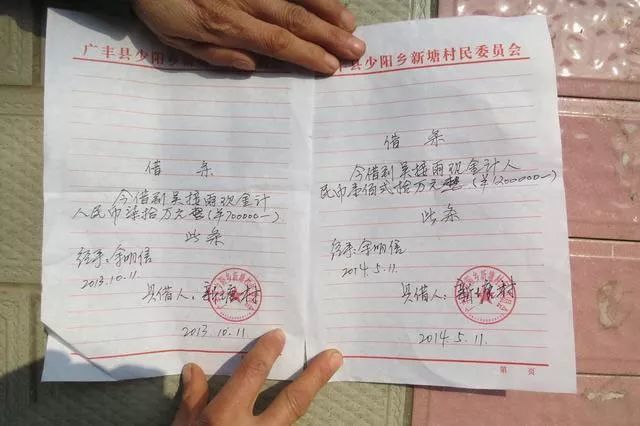 广丰县少阳乡新塘村民委员会
借条
今借到吴接雨现金计
人民币柒拾万元整(¥700000—)
此条
经手:余明信
2013.10.11.
具借人:新塘村
2013.10.11.
县少阳乡新塘村民委员会
借条
今借到吴接雨现金计人
民币壹佰弍拾万元整(¥1200000—)
此条
经手:余明信
2014.5.11.
具借人:新塘村
2014.5.11.
第 页